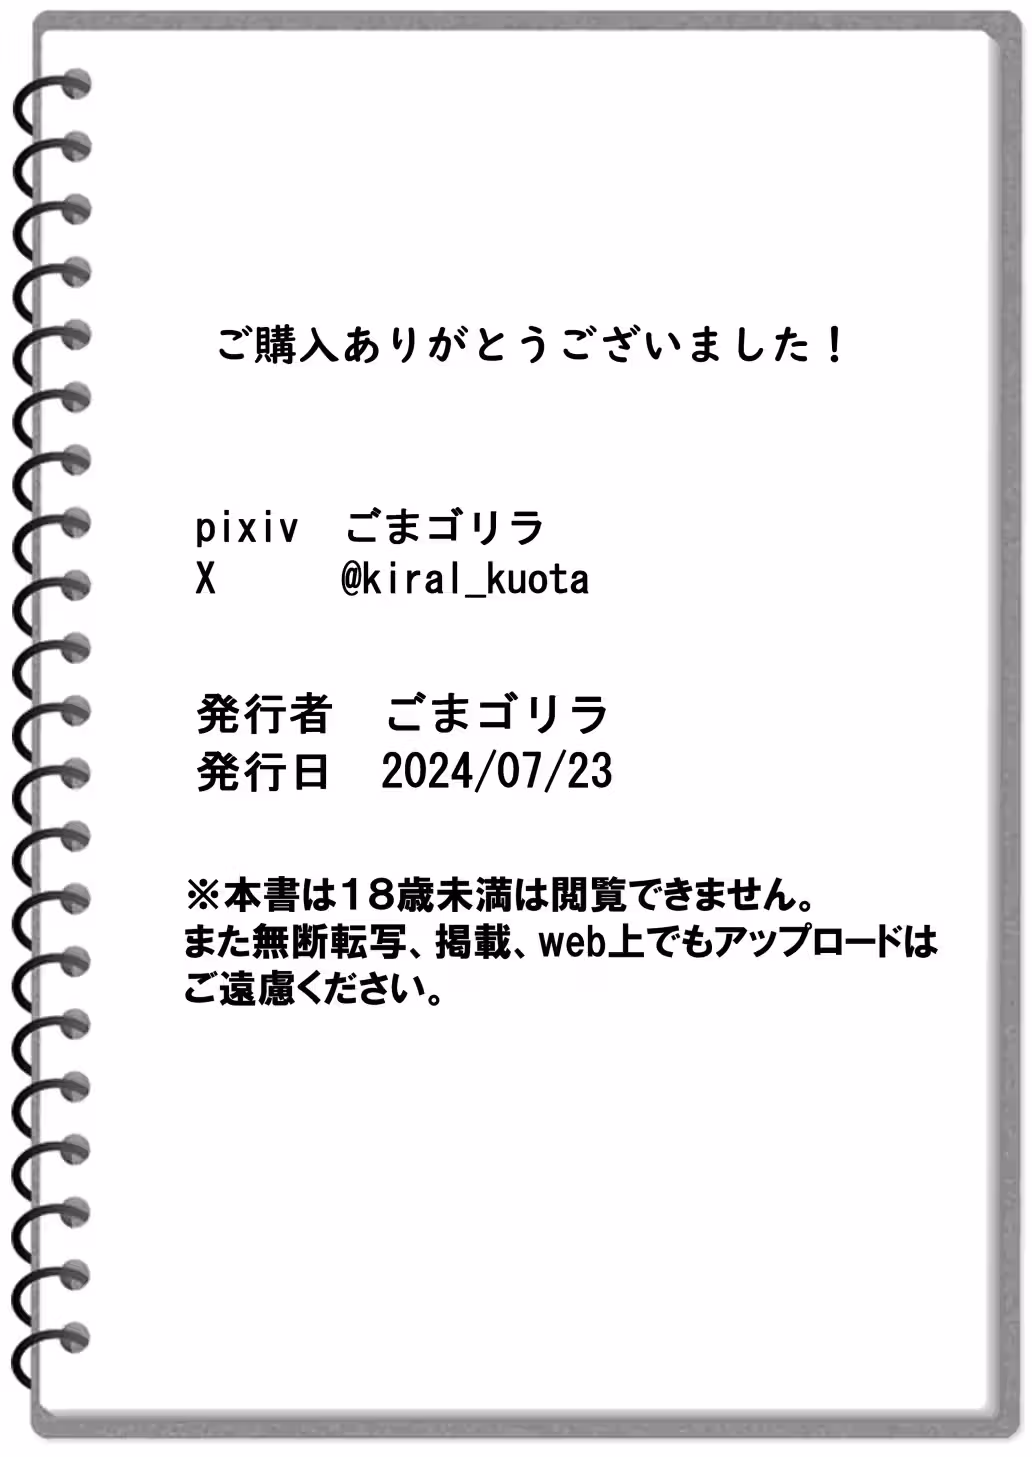 ご購入ありがとうございました！
pixiv　ごまゴリラ
X　@kiral_kuota
発行者　ごまゴリラ
発行日　2024/07/23
※本書は１８歳未満は閲覧できません。
また無断転写、掲載、web上でもアップロードは
ご遠慮ください。